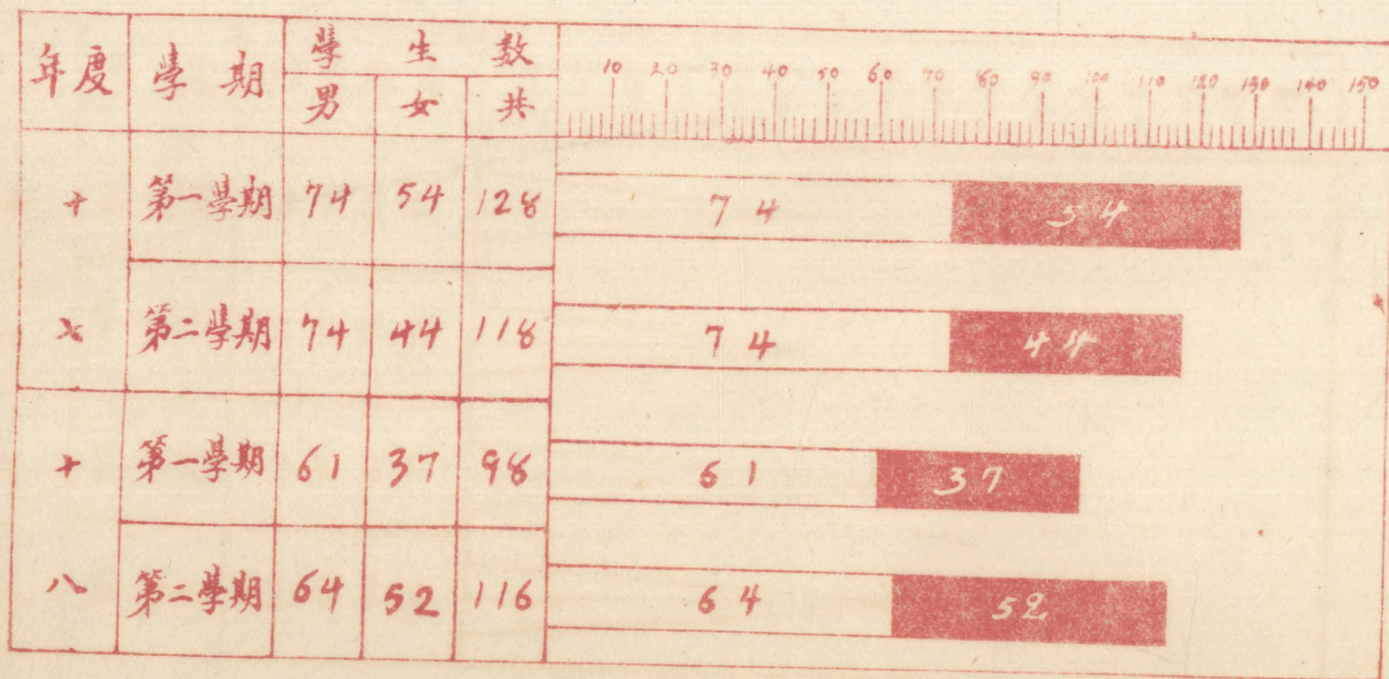 年度 學期 學生數 10 20 30 40 50 60 70 80 90 100 110 120 130 140 150
男 女 共
十 第一學期 74 54 128 74 54
七 第二學期 74 44 118 74 44
十 第一學期 61 37 98 61 37
八 第二學期 64 52 116 64 52